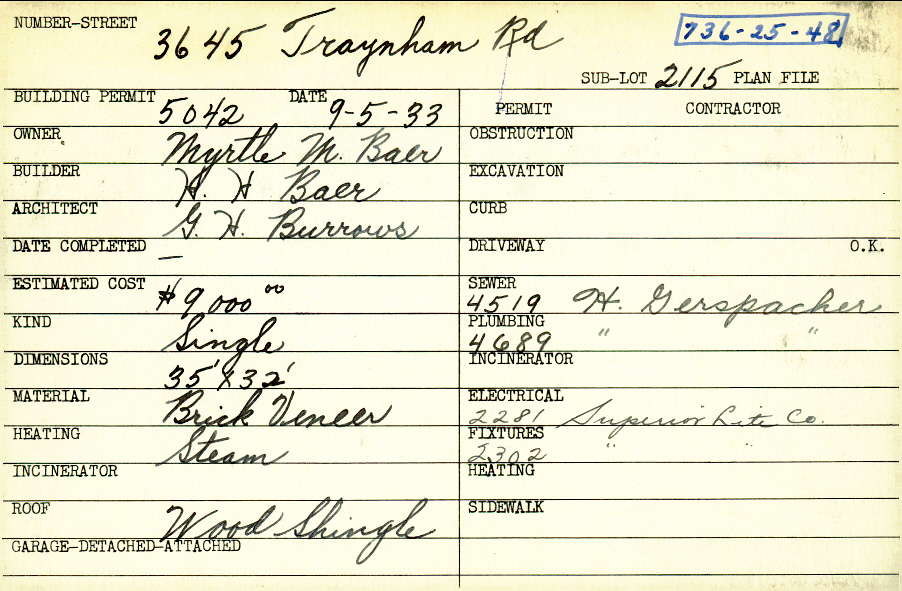 NUMBER-STREET 3645 Traynham Rd 736-25-48
SUB-LOT 2115 PLAN FILE
BUILDING PERMIT 5042 DATE 9-5-33
OWNER Myrtle M. Baer
BUILDER H. H Baer
ARCHITECT G. H. Burrows
DATE COMPLETED —
ESTIMATED COST $9,000 00
KIND Single
DIMENSIONS 35' x 32'
MATERIAL Brick Veneer
HEATING Steam
INCINERATOR
ROOF Wood Shingle
GARAGE-DETACHED-ATTACHED
PERMIT CONTRACTOR
OBSTRUCTION
EXCAVATION
CURB
DRIVEWAY O.K.
SEWER
4519 H. Gerspacher
PLUMBING
4689 " "
INCINERATOR
ELECTRICAL
2281 Superior Lite Co.
FIXTURES
2302 " "
HEATING
SIDEWALK